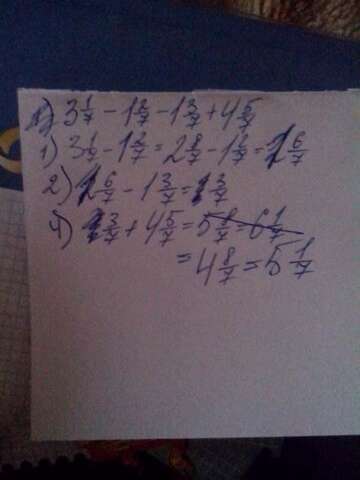 3 1/7 - 1 2/7 - 1 3/7 + 4 5/7
1) 3 1/7 - 1 2/7 = 2 8/7 - 1 2/7 = 1 6/7
2) 1 6/7 - 1 3/7 = 3/7
3/7 + 4 5/7 = 5 8/7 = 6 1/7
= 4 8/7 = 5 1/7